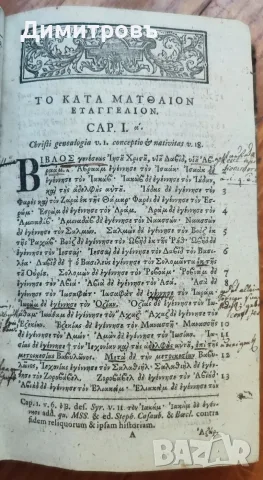 ΤΟ ΚΑΤΑ ΜΑΤΘΑΙΟΝ
ΕΥΑΓΓΕΛΙΟΝ.
CAP. I. α'.
Christi genealogia v. 1. conceptio & nativitas v. 18.
ΒΙΒΛΟΣ γενέσεως Ἰησῦ Χριστῦ, υἱῦ Δαβὶδ, υἱῦ
Ἀβραὰμ ἐγέννησε τὸν Ἰσαάκ· Ἰσαὰκ δὲ 2
ἐγέννησε τὸν Ἰακώβ· Ἰακὼβ δὲ ἐγέννησε τὸν Ἰούδαν,
καὶ τὺς ἀδελφὺς αὐτῦ. Ἰούδας δὲ ἐγέννησε τὸν 3
Φαρὲς καὶ τὸν Ζαρὰ ἐκ τῆς Θάμαρ· Φαρὲς δὲ ἐγέννησε τὸν
Ἐσρώμ· Ἐσρὼμ δὲ ἐγέννησε τὸν Ἀράμ. Ἀρὰμ δὲ ἐγέννησε τὸν 4
Ἀμιναδάβ· Ἀμιναδὰβ δὲ ἐγέννησε τὸν Ναασσών· Ναασσὼν
δὲ ἐγέννησε τὸν Σαλμών. Σαλμὼν δὲ ἐγέννησε τὸν Βοὸζ ἐκ 5
τῆς Ῥαχάβ· Βοὸζ δὲ ἐγέννησε τὸν Ὠβὴδ ἐκ τῆς Ῥούθ· Ὠβὴδ δὲ
ἐγέννησε τὸν Ἰεσσαί. Ἰεσσαὶ δὲ ἐγέννησε τὸν Δαβὶδ τὸν βα- 6
σιλέα· Δαβὶδ δὲ ὁ βασιλεὺς ἐγέννησε τὸν Σολομῶντα ἐκ τῆς
τῦ Οὐρίου. Σολομὼν δὲ ἐγέννησε τὸν Ῥοβοάμ· Ῥοβοὰμ δὲ 7
ἐγέννησε τὸν Ἀβιά· Ἀβιὰ δὲ ἐγέννησε τὸν Ἀσά. Ἀσὰ δὲ 8
ἐγέννησε τὸν Ἰωσαφάτ· Ἰωσαφὰτ δὲ ἐγέννησε τὸν Ἰωράμ·
Ἰωρὰμ δὲ ἐγέννησε τὸν Ὀζίαν. Ὀζίας δὲ ἐγέννησε τὸν 9
Ἰωάθαμ· Ἰωάθαμ δὲ ἐγέννησε τὸν Ἄχαζ· Ἄχαζ δὲ ἐγέννησε τὸν
Ἐζεκίαν. Ἐζεκίας δὲ ἐγέννησε τὸν Μανασσῆ· Μανασσῆς δὲ 10
ἐγέννησε τὸν Ἀμών· Ἀμὼν δὲ ἐγέννησε τὸν Ἰωσίαν. Ἰω- 11
σίας δὲ ἐγέννησε τὸν Ἰεχονίαν καὶ τὺς ἀδελφὺς αὐτῦ, ἐπὶ τῆς
μετοικεσίας Βαβυλῶνος. Μετὰ δὲ τὴν μετοικεσίαν Βαβυ- 12
λῶνος, Ἰεχονίας ἐγέννησε τὸν Σαλαθιήλ· Σαλαθιὴλ δὲ ἐγέννησε
τὸν Ζοροβάβελ. Ζοροβάβελ δὲ ἐγέννησε τὸν Ἀβιούδ· Ἀ- 13
βιοὺδ δὲ ἐγέννησε τὸν Ἐλιακείμ· Ἐλιακεὶμ δὲ ἐγέννησε τὸν
Cap. 1. v. 6. def. Syr. v. 11 τὸν Ἰακίμ, Ἰακὶμ δὲ ἐγέν-
νησε add. MSS. & ed. Steph. Casaub. & Bœcl. contra
fidem reliquorum & ipsam historiam.
A
Ἀζώρ·
BAZAR
bg